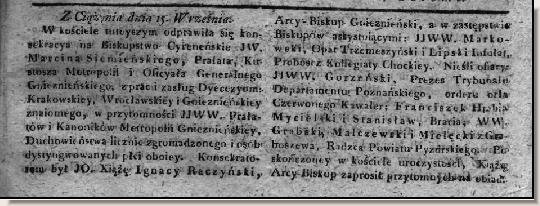 Z Ciążynia dnia 15. Września.
W kościele tuteyszym odprawiła się kon-
sekracya na Biskupstwo Cyreneńskie JW.
Marcina Siemieńskiego, Prałata, Ku-
stosza Metropolii i Oficyała Generalnego
Gnieźnieńskiego, z praci zasług Dyecezyom:
Krakowskiey, Wrocławskiey i Gnieźnieńskiey
znaiomego, w przytomności JJWW. Prała-
tów i Kanoników Metropolii Gnieźnieńskiey,
Duchowieństwa licznie zgromadzonego i osób
dystyngwowanych płci oboiey. Konsekrato-
rem był JO. Xiążę Ignacy Raczyński,
Arcy-Biskup Gnieźnieński, a w zastępstwie
Biskupów assystuiącymi: JJWW. Marko-
wski, Opat Trzemeszyński i Lipski Infułat,
Proboszcz Kollegiaty Chockiey. Nieśli ofiary:
JJWW. Gorzeński, Prezes Trybunału
Departamentu Poznańskiego, orderu orła
Czerwonego Kawaler; Franciszek Hrabia
Mycielski i Stanisław, Bracia, WW.
Grabski, Malczewski i Mielęcki z Gra-
boszewa, Radzca Powiatu Pyzdrskiego. Po
skończoney w kościele uroczystości, Xiążę
Arcy-Biskup zaprosił przytomnych na obiad.